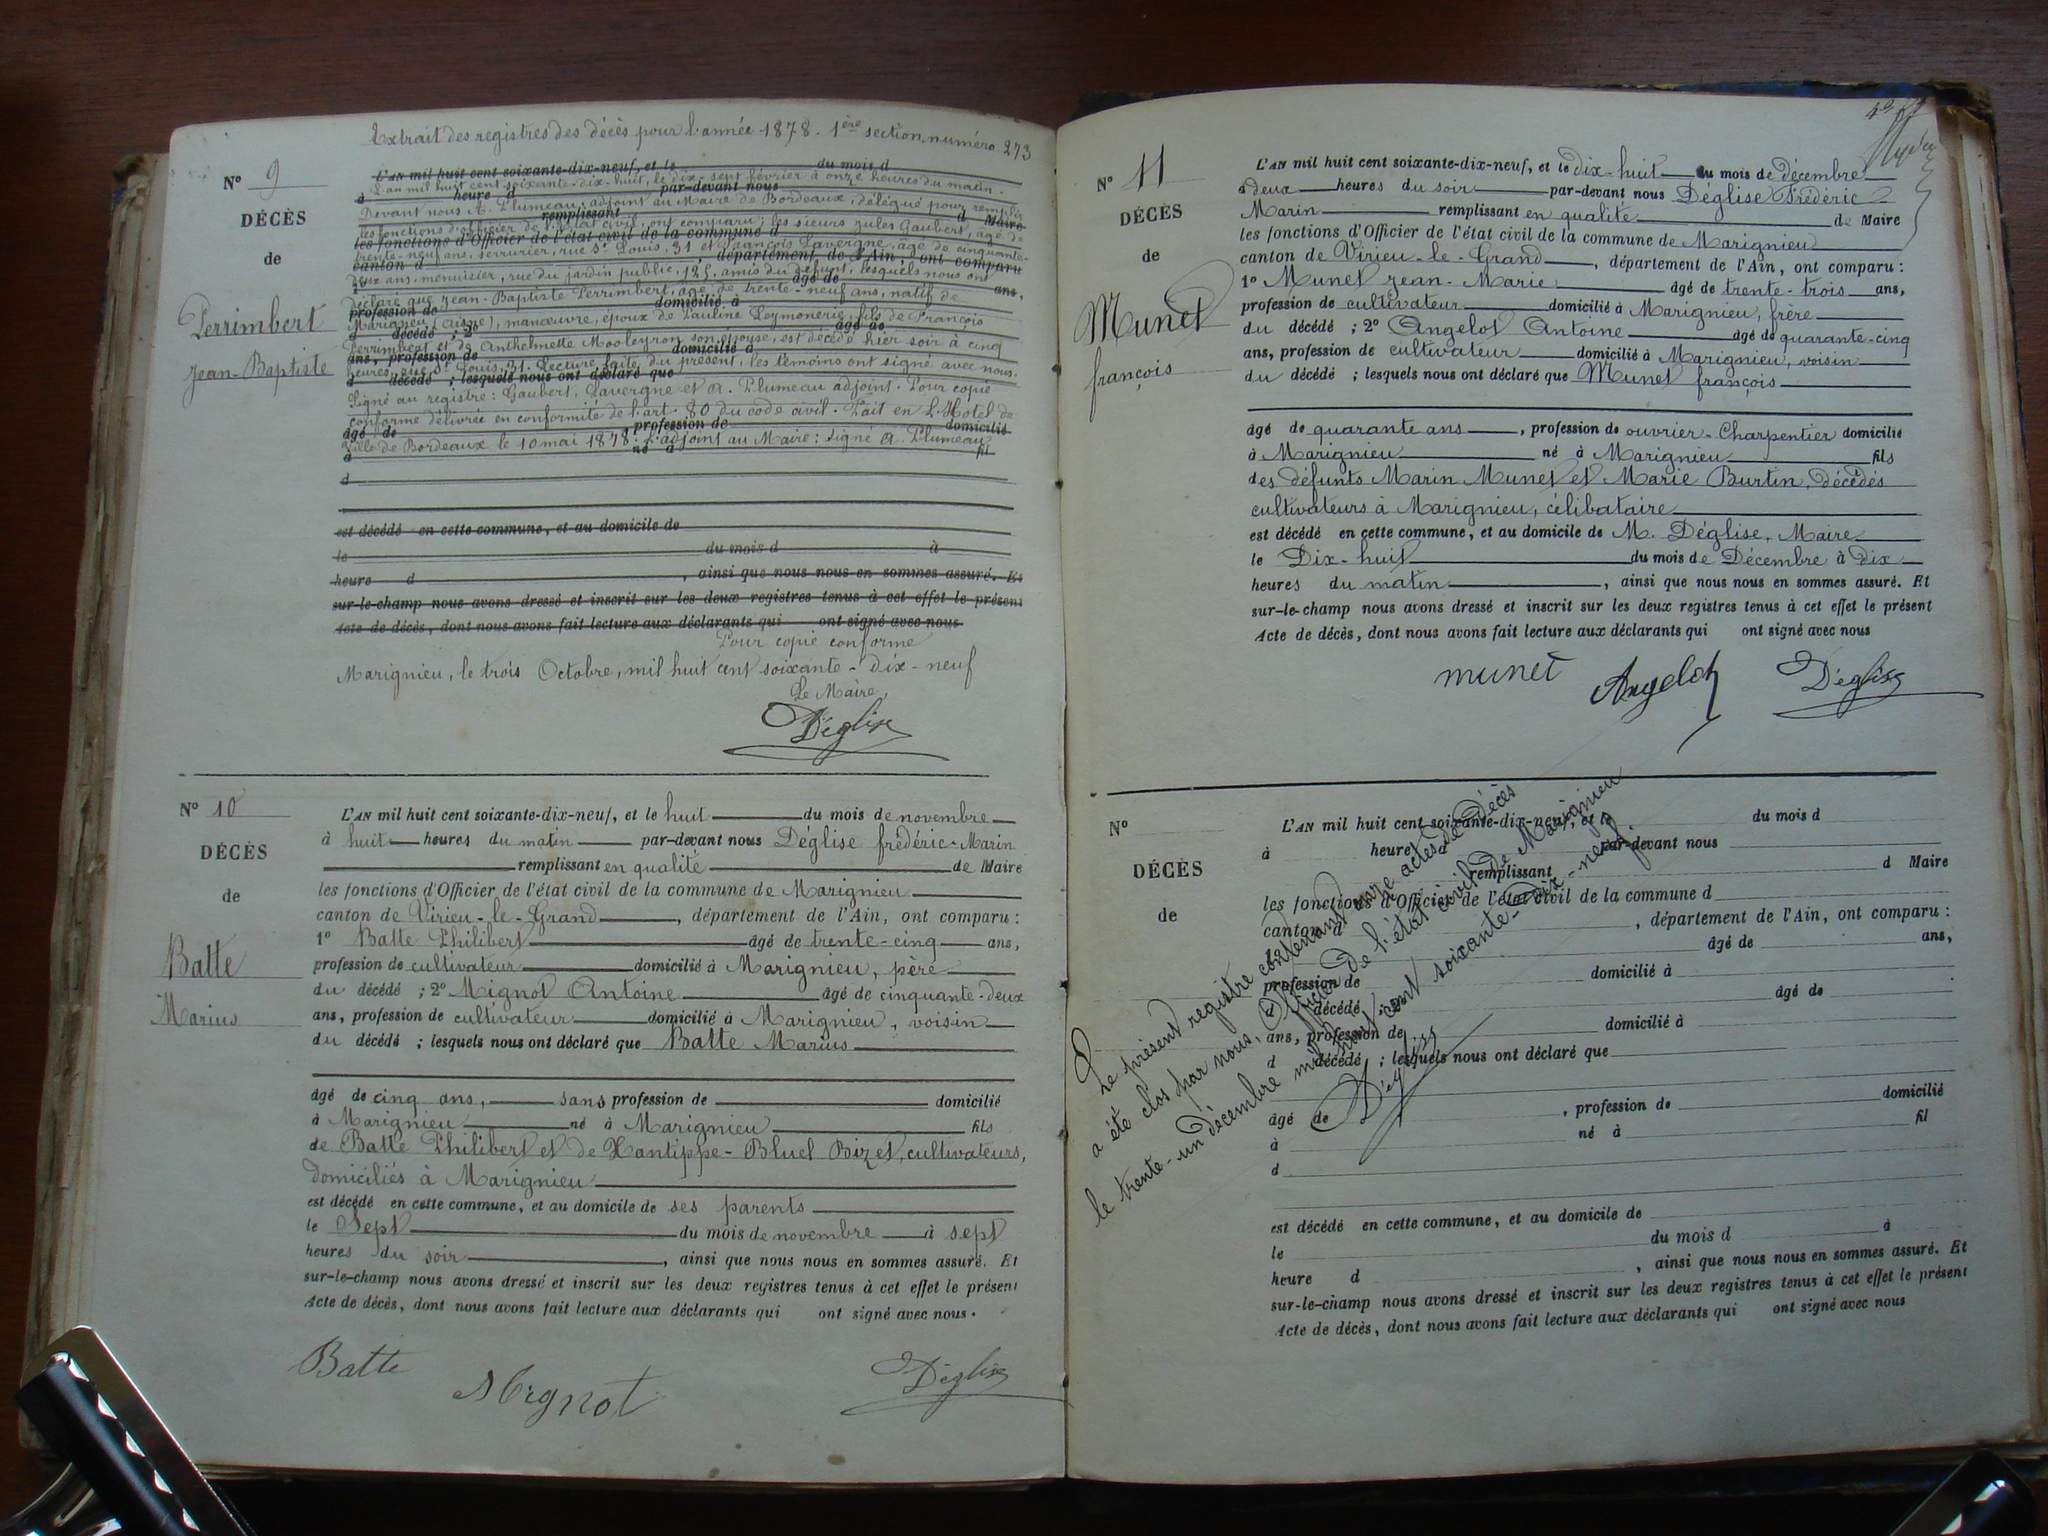 Extrait des registres des décès pour l'année 1878. 1ère section, numéro 273
N° 9
DÉCÈS
de
Perrimbert
Jean-Baptiste
L'AN mil huit cent soixante-dix-neuf, et le du mois d
L'an mil huit cent soixante-dix-huit, le dix-sept février à onze heures du matin.
à heure d par-devant nous
Devant nous A. Plumeau, adjoint au Maire de Bordeaux, délégué pour remplir
remplissant d Maire
les fonctions d'officier de l'Etat civil, ont comparu; les sieurs Jules Gaubert, âgé de
les fonctions d'Officier de l'état civil de la commune d
trente-neuf ans, serrurier, rue St Louis, 31 et François Lavergne, âgé de cinquante-
canton d , département de l'Ain, ont comparu
deux ans, menuisier, rue du jardin public, 125, amis du défunt, lesquels nous ont
1° âgé de ans,
déclaré que Jean-Baptiste Perrimbert, âgé de trente-neuf ans, natif de
profession de domicilié à
Marignieu (Aisne), manœuvre, époux de Pauline Peymonerie, fils de François
d décédé ; 2° âgé de
Perrimbert et de Anthelmette Mooleyron son épouse, est décédé hier soir à cinq
ans, profession de domicilié à
heures, rue St Louis, 31. Lecture faite du présent, les témoins ont signé avec nous.
d décédé ; lesquels nous ont déclaré que
Signé au registre: Gaubert, Lavergne et A. Plumeau adjoint. Pour copie
conforme délivrée en conformité de l'art. 80 du code civil. Fait en l'Hotel de
âgé de profession de domicilié
ville de Bordeaux le 10 mai 1878. L'adjoint au Maire: signé A. Plumeau
à né à fil
d
est décédé en cette commune, et au domicile de
le du mois d à
heure d , ainsi que nous nous en sommes assuré. Et
sur-le-champ nous avons dressé et inscrit sur les deux registres tenus à cet effet le présent
Acte de décès, dont nous avons fait lecture aux déclarants qui ont signé avec nous
Pour copie conforme
Marignieu, le trois Octobre, mil huit cent soixante-dix-neuf
Le Maire,
Déglise
N° 10
DÉCÈS
de
Batte
Marius
L'AN mil huit cent soixante-dix-neuf, et le huit du mois de novembre
à huit heures du matin par-devant nous Déglise frédéric-Marin
remplissant en qualité de Maire
les fonctions d'Officier de l'état civil de la commune de Marignieu
canton de Virieu-le-Grand , département de l'Ain, ont comparu :
1° Batte Philibert âgé de trente-cinq ans,
profession de cultivateur domicilié à Marignieu, père
du décédé ; 2° Mignot Antoine âgé de cinquante-deux
ans, profession de cultivateur domicilié à Marignieu, voisin
du décédé ; lesquels nous ont déclaré que Batte Marius
âgé de cinq ans, sans profession de domicilié
à Marignieu né à Marignieu fils
de Batte Philibert et de Xantippe-Bluel Bizet, cultivateurs,
domiciliés à Marignieu
est décédé en cette commune, et au domicile de ses parents
le Sept du mois de novembre à sept
heures du soir , ainsi que nous nous en sommes assuré. Et
sur-le-champ nous avons dressé et inscrit sur les deux registres tenus à cet effet le présent
Acte de décès, dont nous avons fait lecture aux déclarants qui ont signé avec nous.
Batte Mignot Déglise
N° 11
DÉCÈS
de
Munet
françois
L'AN mil huit cent soixante-dix-neuf, et le dix-huit du mois de décembre
à deux heures du soir par-devant nous Déglise Frédéric
Marin remplissant en qualité de Maire
les fonctions d'Officier de l'état civil de la commune de Marignieu
canton de Virieu-le-Grand , département de l'Ain, ont comparu :
1° Munet Jean-Marie âgé de trente-trois ans,
profession de cultivateur domicilié à Marignieu, frère
du décédé ; 2° Angelot Antoine âgé de quarante-cinq
ans, profession de cultivateur domicilié à Marignieu, voisin
du décédé ; lesquels nous ont déclaré que Munet françois
âgé de quarante ans , profession de ouvrier-Charpentier domicilié
à Marignieu né à Marignieu fils
des défunts Marin Munet et Marie Burtin, décédés
cultivateurs à Marignieu, célibataire
est décédé en cette commune, et au domicile de M. Déglise, Maire
le Dix-huit du mois de Décembre à dix
heures du matin , ainsi que nous nous en sommes assuré. Et
sur-le-champ nous avons dressé et inscrit sur les deux registres tenus à cet effet le présent
Acte de décès, dont nous avons fait lecture aux déclarants qui ont signé avec nous
munet Angelot Déglise
N°
DÉCÈS
de
L'AN mil huit cent soixante-dix-neuf, et le du mois d
à heure d par-devant nous
remplissant d Maire
les fonctions d'Officier de l'état civil de la commune d
canton d , département de l'Ain, ont comparu :
1° âgé de ans,
profession de domicilié à
d décédé ; 2° âgé de
ans, profession de domicilié à
d décédé ; lesquels nous ont déclaré que
âgé de , profession de domicilié
à né à fil
d
est décédé en cette commune, et au domicile de
le du mois d à
heure d , ainsi que nous nous en sommes assuré. Et
sur-le-champ nous avons dressé et inscrit sur les deux registres tenus à cet effet le présent
Acte de décès, dont nous avons fait lecture aux déclarants qui ont signé avec nous
Le présent registre contenant onze actes de Décès
a été clos par nous, Officier de l'état civil de Marignieu
le trente-un décembre mil huit cent soixante-dix-neuf.
Déglise